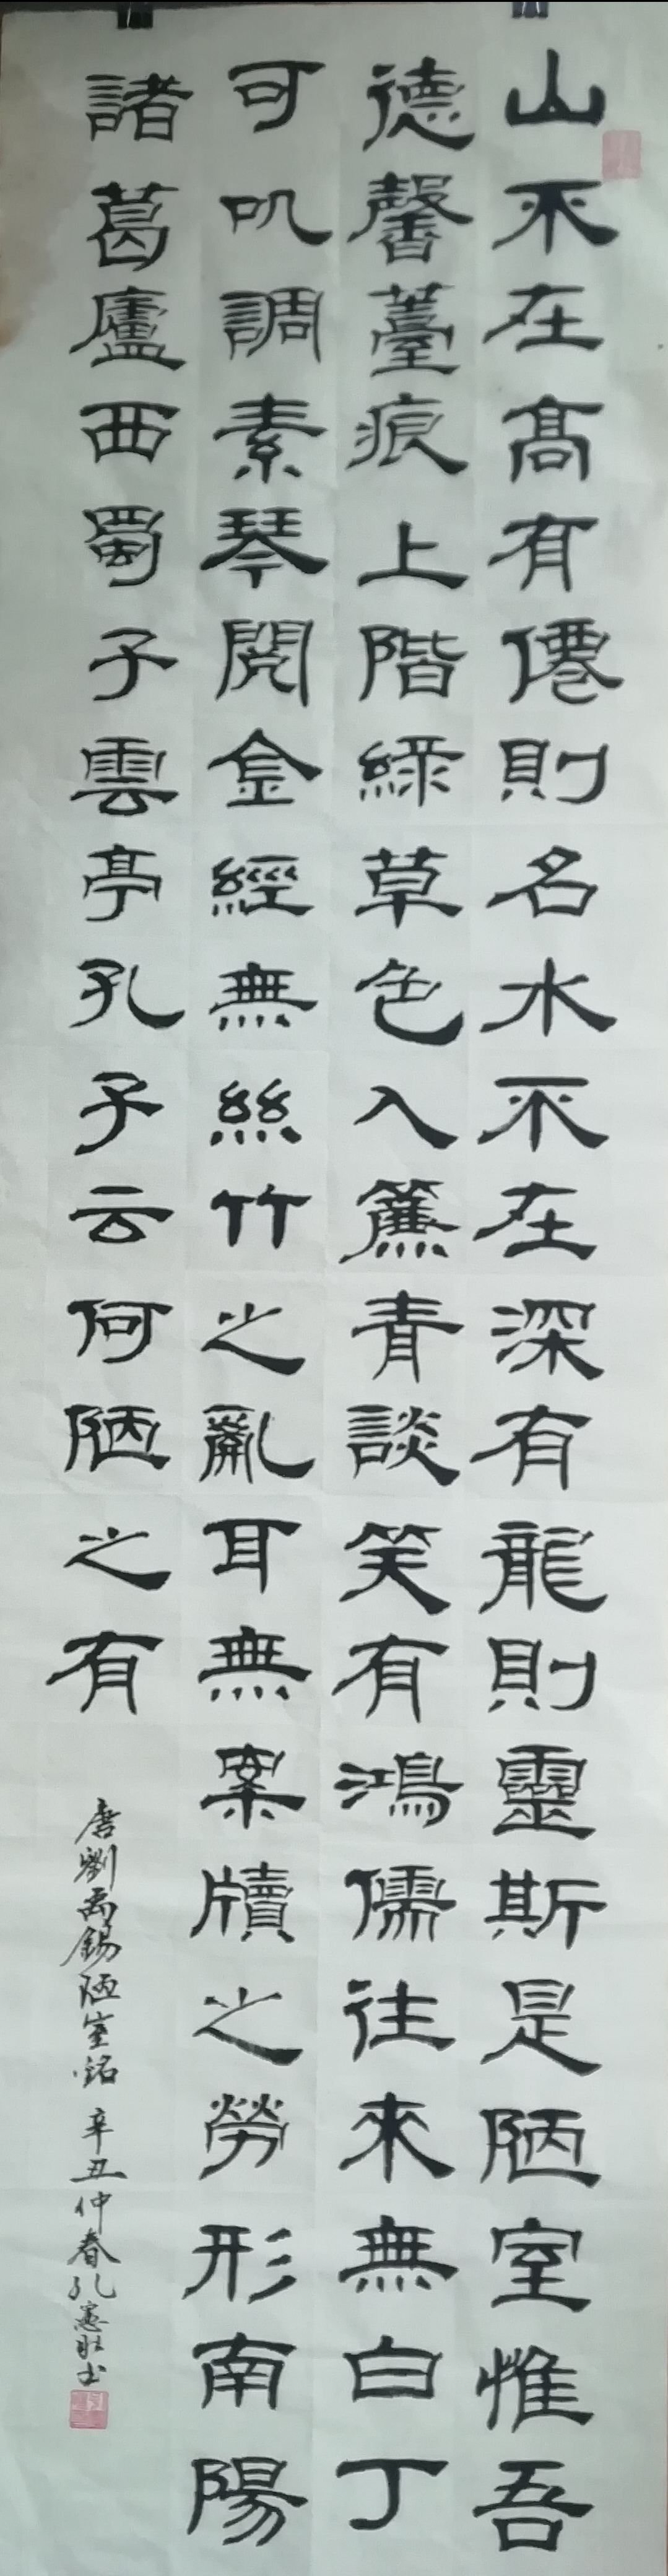 山不在高有僊則名水不在深有龍則靈斯是陋室惟吾
德馨薹痕上階綠草色入簾青談笑有鴻儒往來無白丁
可㕥調素琴閱金經無絲竹之亂耳無案牘之勞形南陽
諸葛廬西蜀子雲亭孔子云何陋之有
唐劉禹錫陋室銘 辛丑仲春孔憲书